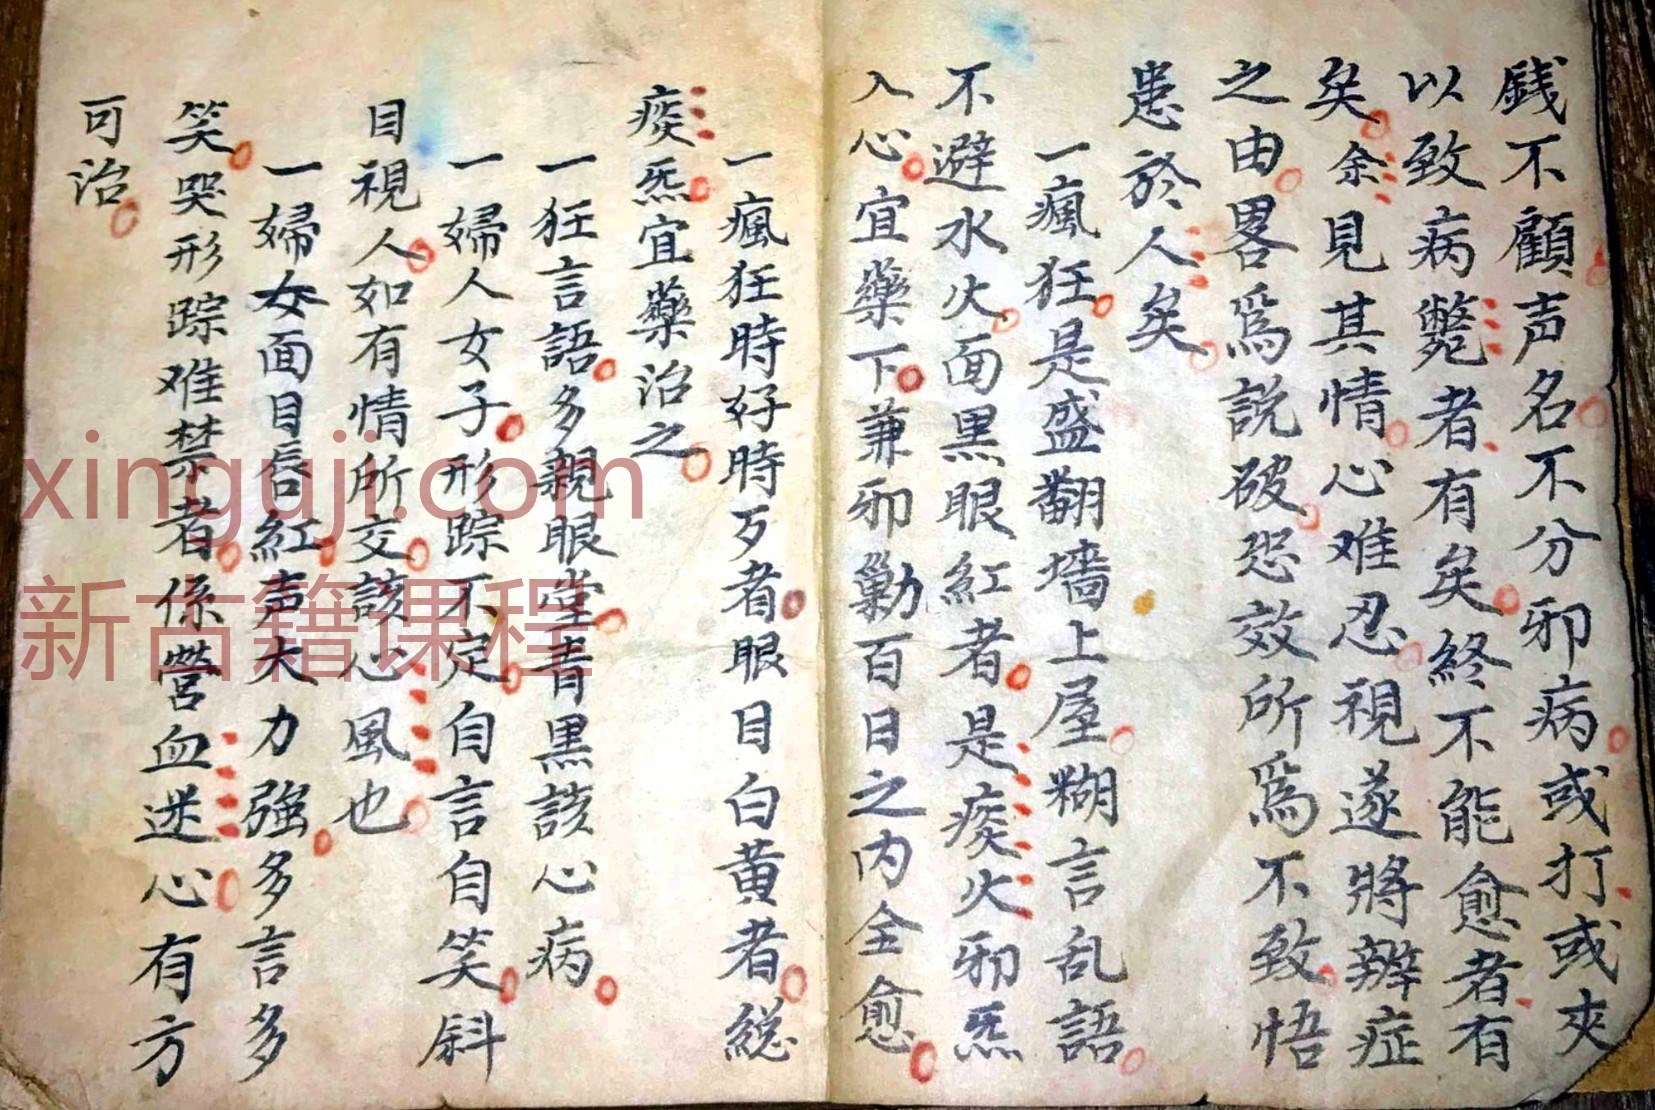 銭不顧声名不分邪病或打或夾
以致病斃者有矣終不能愈者有
矣余見其情心难忍視遂將辨症
之由畧爲説破恐效所爲不致悟
患於人矣
一瘋狂是盛翻墙上屋糊言乱語
不避水火面黒眼紅者是痰火邪炁
入心宜藥下兼邪勦百日之内全愈
一瘋狂時好時歹者眼目白黄者総
痰炁宜藥治之
一狂言語多親眼堂青黒該心病
一婦人女子形踪不定自言自笑斜
目視人如有情所交該心風也
一婦女面目唇紅声大力強多言多
笑哭形踪难禁者係營血迷心有方
可治
xinguji.com
新古籍课程